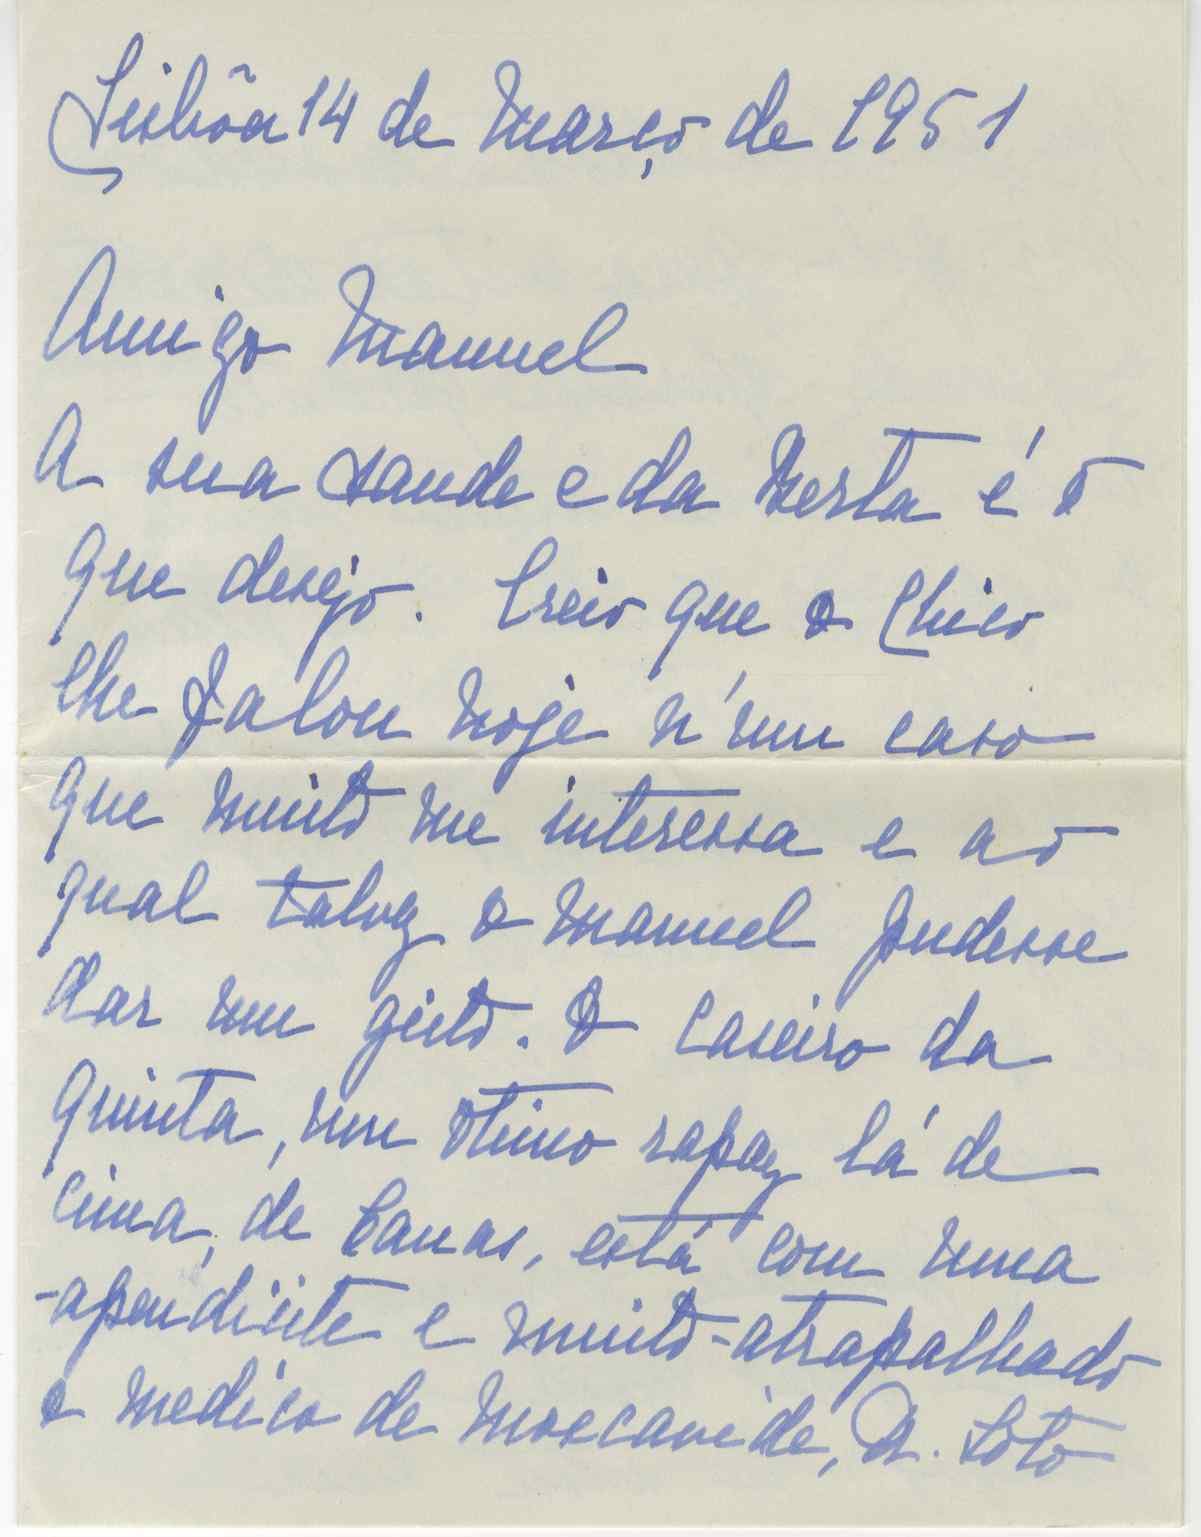 Lisbôa 14 de Março de 1951
Amigo Manuel
A sua saude e da Berta é o
que desejo. Creio que o Chico
lhe falou hoje n'um caso
que muito me interessa e ao
qual talvez o Manuel pudesse
dar um geito. O caseiro da
quinta, um otimo rapaz lá de
cima, de Canas, está com uma
apendicite e muito atrapalhado
o medico de Moscavide, D. Soto